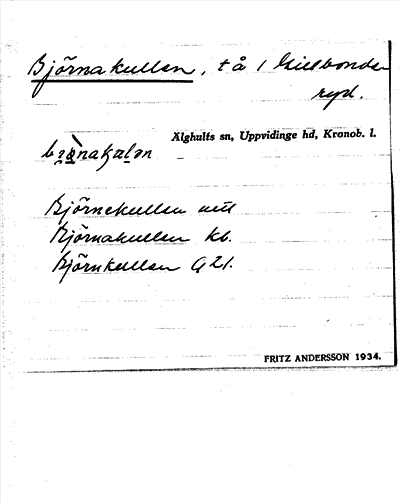 Björnakullen, tå / Gillbonde-
ryd.
Älghults sn, Uppvidinge hd, Kronob. l.
Björnekullen
Björnakullen kb.
Björnkullen G21.
FRITZ ANDERSSON 1934.